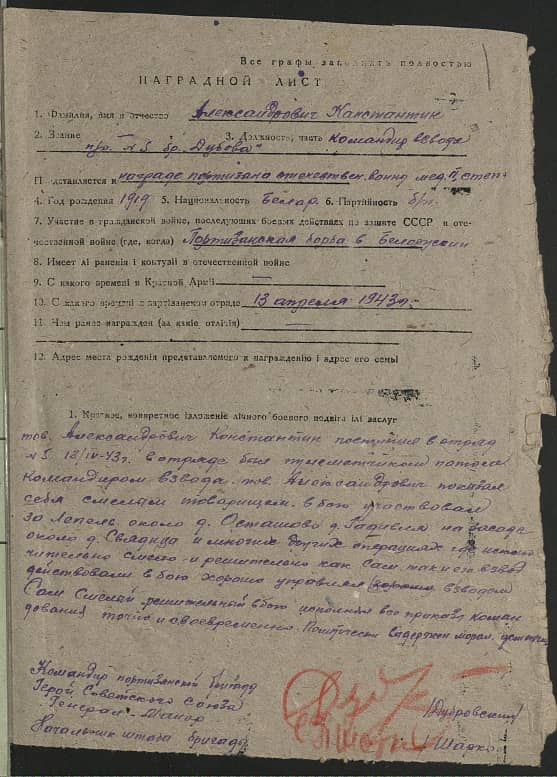 Все графы заполнять полностью
НАГРАДНОЙ ЛИСТ
1. Фамилия, імя и отчество Александрович Канстантин
2. Звание — 3. Должность, часть командир взвода
п/о. №5 бр. "Дубова"
Представляется к награде портизана отечествен. войны мед. II степ
4. Год рождения 1919 5. Национальность Белар. 6. Партійность б/п.
7. Участие в гражданской войне, последующих боевых действиях по защите СССР и оте-
чественной войне (где, когда) Портизанская борьба в Белоруссии
8. Имеет лі раненія і контузіі в отечественной войне
9. С какого времени в Красной Армії —
10. С какого времені в партізанском отряде 13 апреля 1943 г.
11. Чем ранее награжден (за какіе отлічія) —
12. Адрес места рожденія представляемого к награждению і адрес его семьі
1. Краткое, конкретное ізложеніе лічного боевого подвіга ілі заслуг
тов. Александрович Константин поступил в отряд
№5 13/IV-43г. в отряде был
командиром взвода. тов. Александрович показал
себя смелым товарищем. в бою участвовал
за Лепель около д. Осташово д. на засаде
около д. Свядица и многих других операциях где исклю
чительно смело и решительно как сам, так и его взвод
действовали в бою хорошо управлял взводом
Сам смелый, решительный в бою исполнял все приказы коман
дования точно и своевременно. Политически выдержан морал. устойчив
Командир портизанской бригады
Герой Советского Союза
Генерал-Маиор /Дубровский/
Начальник штаба бригады